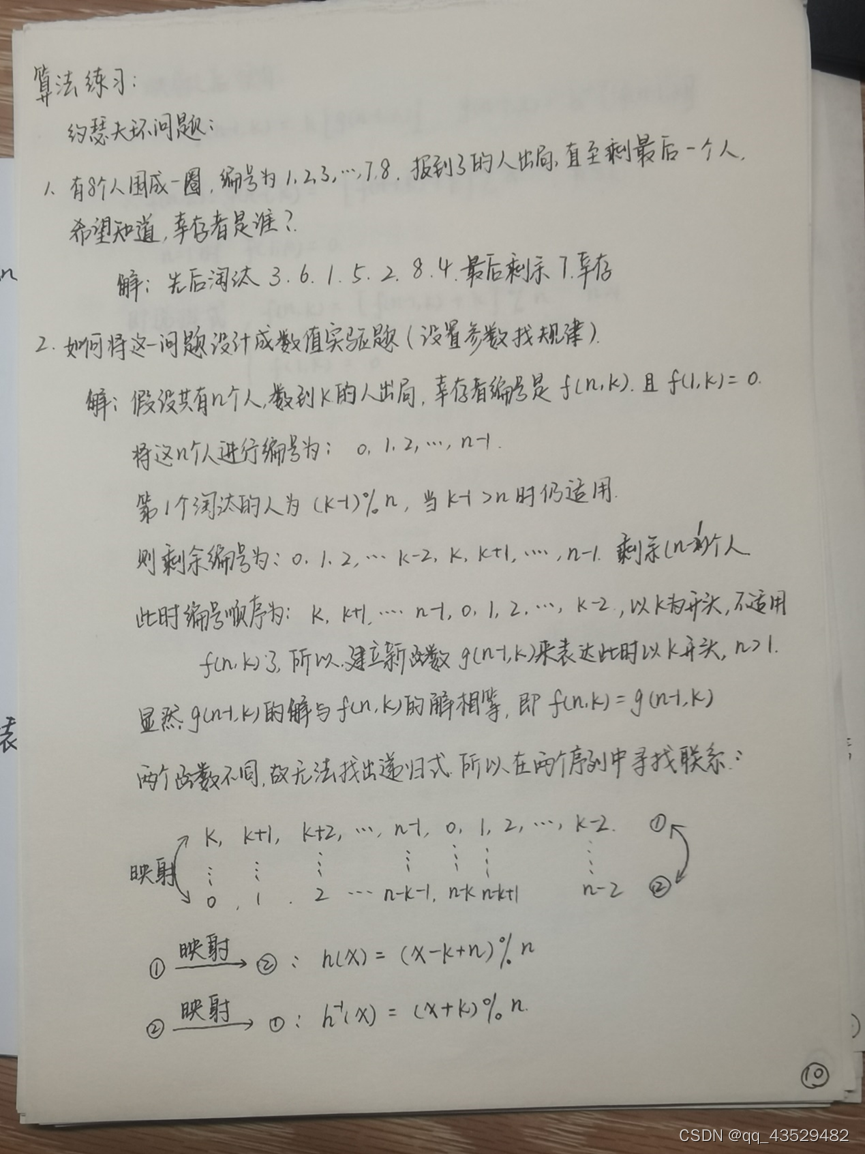 算法练习：
约瑟夫环问题：
1. 有8个人围成一圈，编号为1,2,3,…,7,8. 报到3的人出局，直至剩最后一个人，
希望知道，幸存者是谁？
解：先后淘汰 3.6.1.5.2.8.4. 最后剩余7幸存
2. 如何将这一问题设计成数值实验题（设置参数找规律）.
解：假设共有n个人，数到k的人出局，幸存者编号是 f(n,k). 且 f(1,k)=0.
将这n个人进行编号为： 0, 1, 2, …, n-1.
第1个淘汰的人为 (k-1)%n, 当 k-1>n 时仍适用.
则剩余编号为：0, 1, 2, … k-2, k, k+1, …, n-1. 剩余(n-1)个人
此时编号顺序为： k, k+1, … n-1, 0, 1, 2, …, k-2, 以k为开头，不适用
f(n,k)了，所以，建立新函数 g(n-1,k)来表达此时以k开头，n>1.
显然，g(n-1,k)的解与f(n,k)的解相等，即 f(n,k) = g(n-1,k)
两个函数不同，故无法找出递归式. 所以在两个序列中寻找联系：
k, k+1, k+2, …, n-1, 0, 1, 2, …, k-2. ①
映射
0, 1, 2 … n-k-1, n-k n-k+1 n-2 ②
① 映射 → ②： h(x) = (x-k+n)%n
② 映射 → ①： h⁻¹(x) = (x+k)%n.
10
CSDN @qq_43529482